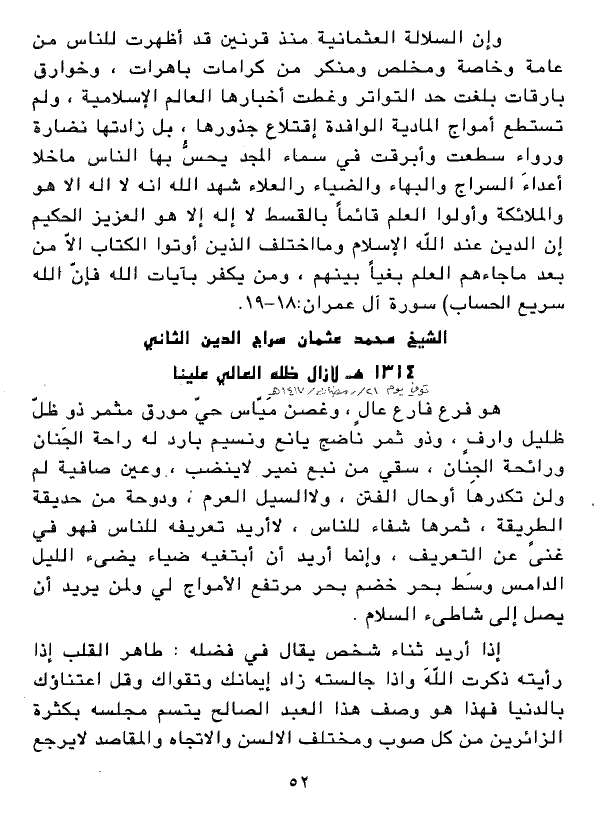 وإن السلالة العثمانية منذ قرنين قد أظهرت للناس من
عامة وخاصة ومخلص ومنكر من كرامات باهرات ، وخوارق
بارقات بلغت حد التواتر وغطت أخبارها العالم الإسلامية ، ولم
تستطع أمواج المادية الوافدة إقتلاع جذورها ، بل زادتها نضارة
ورواء سطعت وأبرقت في سماء المجد يحسُّ بها الناس ماخلا
أعداءَ السراج والبهاء والضياء رالعلاء شهد الله انه لا اله الا هو
والملائكة وأولوا العلم قائماً بالقسط لا إله إلا هو العزيز الحكيم
إن الدين عند اللّه الإسلام ومااختلف الذين أوتوا الكتاب الاّ من
بعد ماجاءهم العلم بغياً بينهم ، ومن يكفر بآيات الله فإنّ الله
سريع الحساب) سورة آل عمران:١٨-١٩.
الشيخ محمد عثمان سراج الدين الثاني
١٣١٤ هـ لازال ظله العالي علينا
توفي يوم ٢١/رمضان/١٤١٧هـ
هو فرع فارع عالٍ ، وغصن ميّاس حيّ مورق مثمر ذو ظلّ
ظليل وارفٍ ، وذو ثمر ناضج يانع ونسيم بارد له راحة الجَنان
ورائحة الجِنان ، سقي من نبع نمير لاينضب ، وعين صافية لم
ولن تكدرها أوحال الفتن ، ولاالسيل العرم ، ودوحة من حديقة
الطريقة ، ثمرها شفاء للناس ، لاأريد تعريفه للناس فهو في
غنىً عن التعريف ، وإنما أريد أن أبتغيه ضياء يضىء الليل
الدامس وسَط بحر خضم بحر مرتفع الأمواج لي ولمن يريد أن
يصل إلى شاطىء السلام .
إذا أريد ثناء شخص يقال في فضله : طاهر القلب إذا
رأيته ذكرت اللّهَ واذا جالسته زاد إيمانك وتقواك وقل اعتناؤك
بالدنيا فهذا هو وصف هذا العبد الصالح يتسم مجلسه بكثرة
الزائرين من كل صوب ومختلف الالسن والاتجاه والمقاصد لايرجع
٥٢